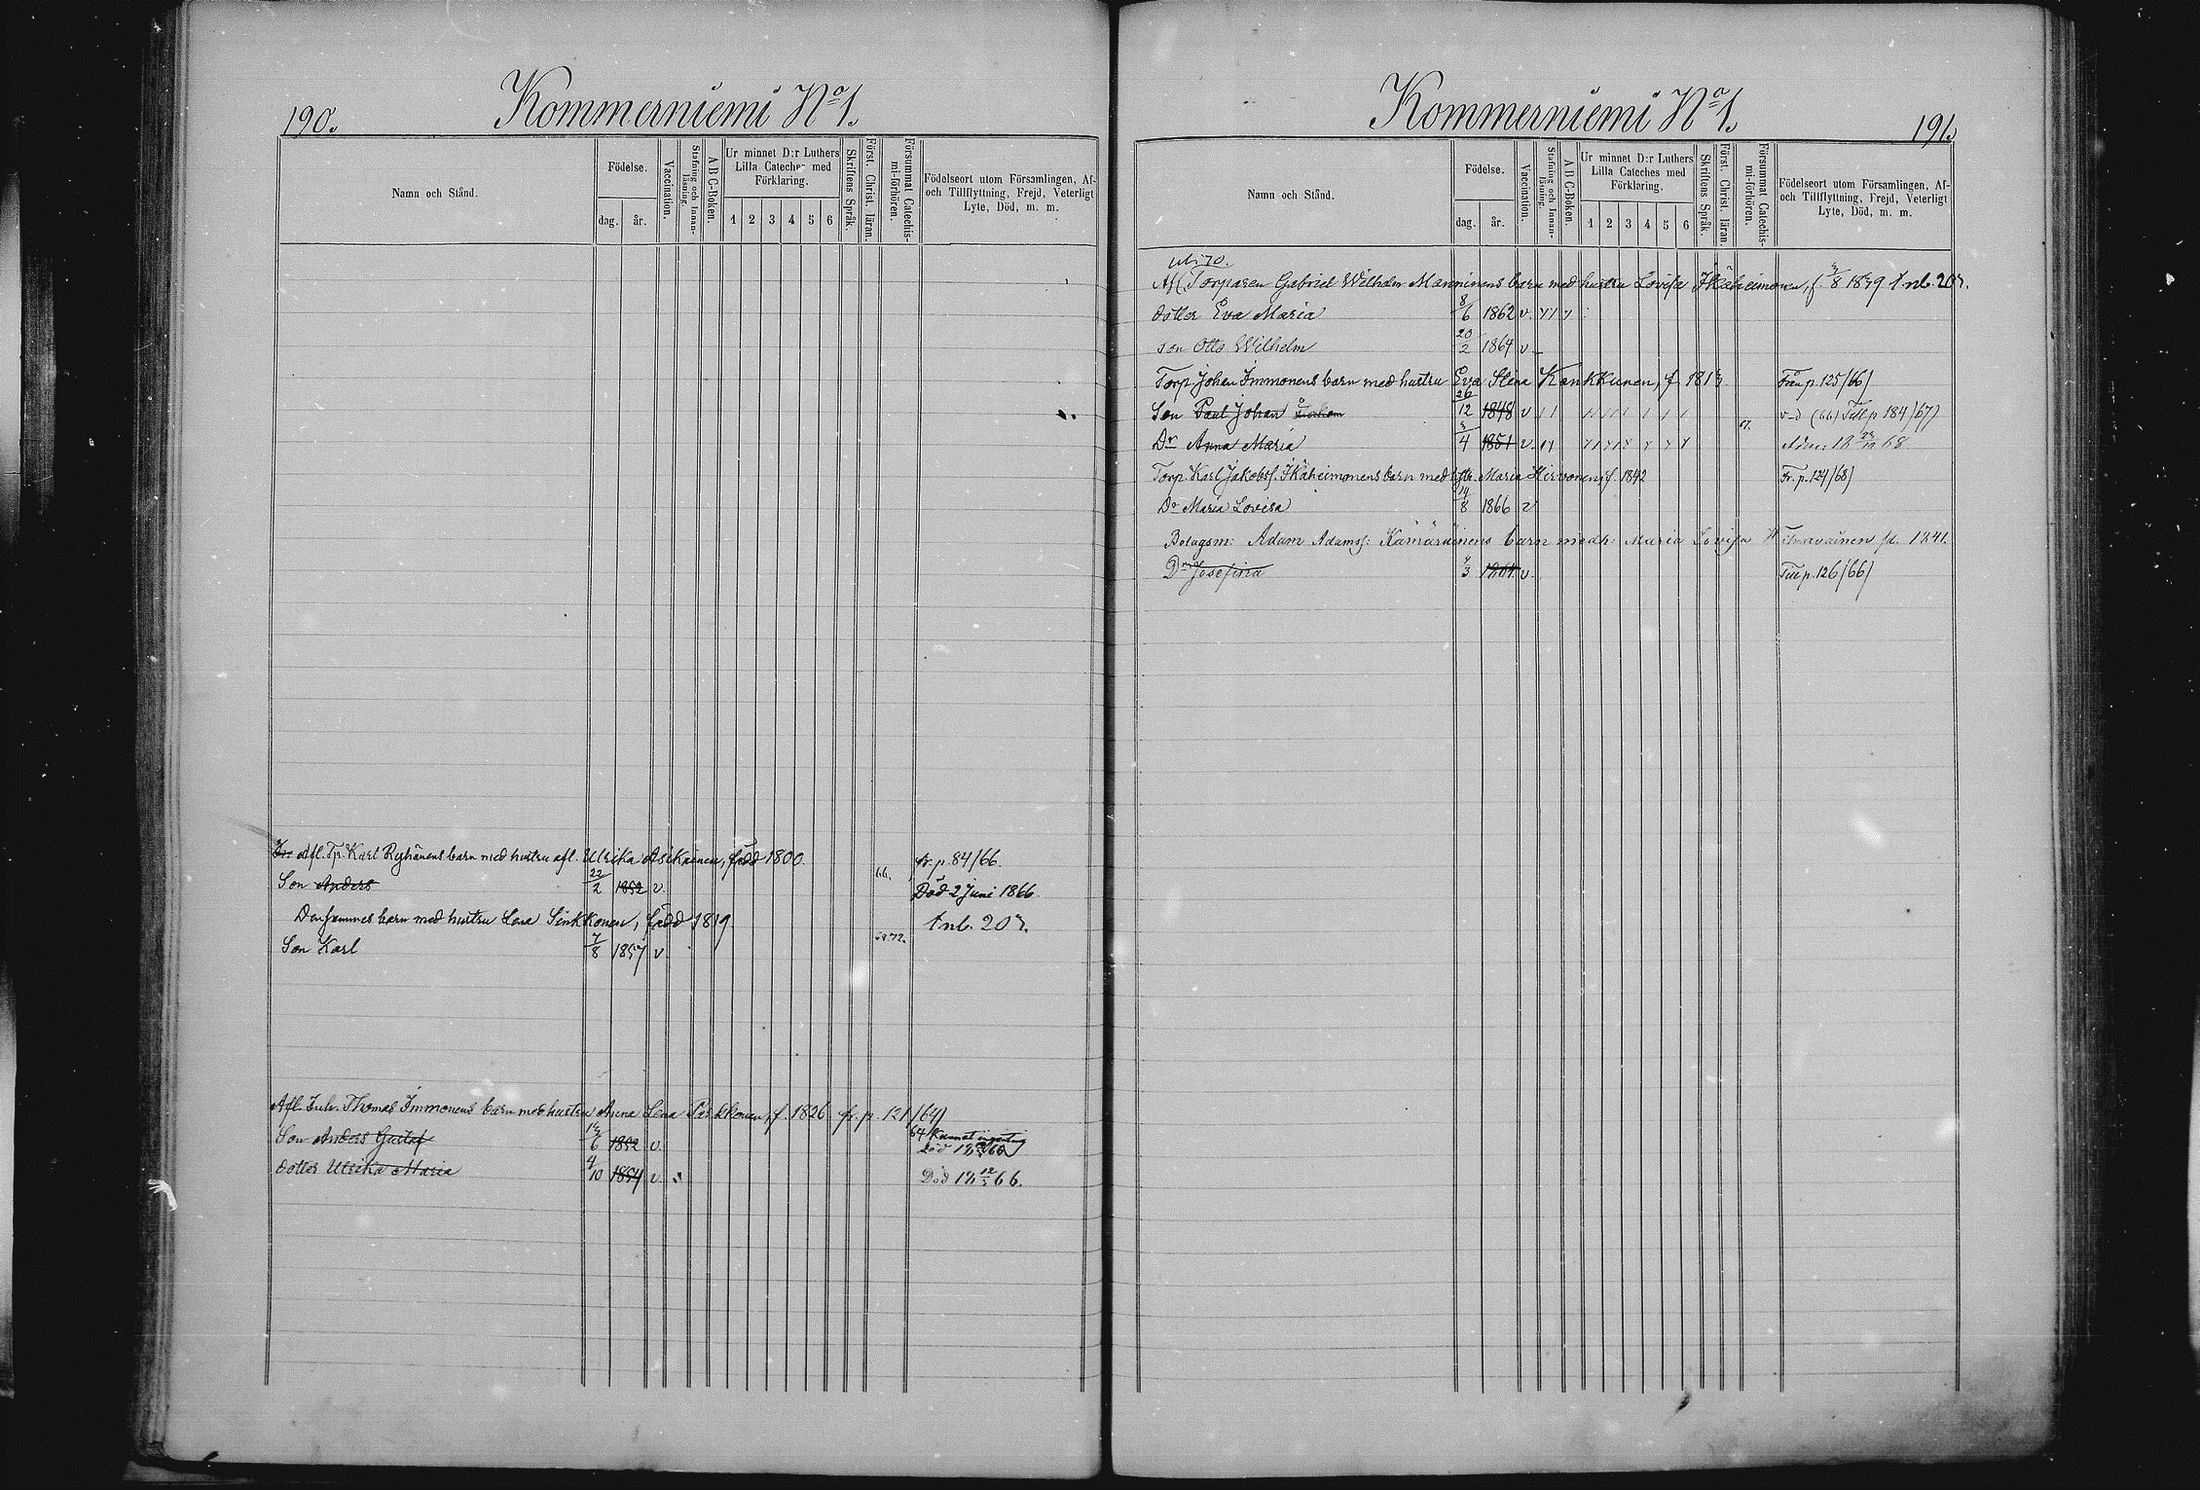 190.
Kommerniemi No 1.
Namn och Stånd.
Födelse.
dag.
år.
Vaccination.
Stafning och Innanläsning.
A B C-Boken.
Ur minnet D:r Luthers Lilla Cateches med Förklaring.
1 2 3 4 5 6
Skriftens Språk.
Först. Christ. läran.
Försummat Catechismi-förhören.
Födelseort utom Församlingen, Af- och Tillflyttning, Frejd, Veterligt Lyte, Död, m. m.
Afl. Tp. Karl Reyhänens barn med hustru afl. Ulrika Asikainen, född 1800. fr. p. 84/66.
Son Anders 22/2 1852 v. 66. Död 2 Juni 1866.
Densammes barn med hustru Lena Sinkkonen, född 1819.
Son Karl 7/8 1857 v.
Afl. Inh. Thomas Immonens barn med hustru Anna Lena Parkkonen, f. 1826 fr. p. 121/64)
Son Anders Gustaf 6 1852 v.
dotter Ulrika Maria 4/10 1854 v. Död 18 12/5 66.
Kommerniemi No 1.
191.
Namn och Stånd.
Födelse.
dag.
år.
Vaccination.
Stafning och Innanläsning.
A B C-Boken.
Ur minnet D:r Luthers Lilla Cateches med Förklaring.
1 2 3 4 5 6
Skriftens Språk.
Först. Christ. läran.
Försummat Catechismi-förhören.
Födelseort utom Församlingen, Af- och Tillflyttning, Frejd, Veterligt Lyte, Död, m. m.
Torparen Gabriel Wilhelm Manninens barn med hustru Lovisa Ikäheimonen, f.
dotter Eva Maria 8/6 1862 v.
son Otto Wilhelm 20/2 1864 v
Torp. Johan Immonens barn med hustru Eva Stina Kankkunen, f. Från p. 125/66)
Son Paul Johan 26/12 1848 v v-d (66) Till p 184/67)
Dr Anna Maria 4 1851 v. 67.
Torp. Karl Jakobss. Ikäheimonens barn med hstr. Maria Hirvonen, f. 1842 Fr. p. 124/68)
Dr Maria Lovisa 14/8 1866 v
Bolagsm: Adam Adamss: Kämäräinens barn med h: Maria Lovisa fd. 1841.
Dr Josefina 3 v. Till p. 126/66)